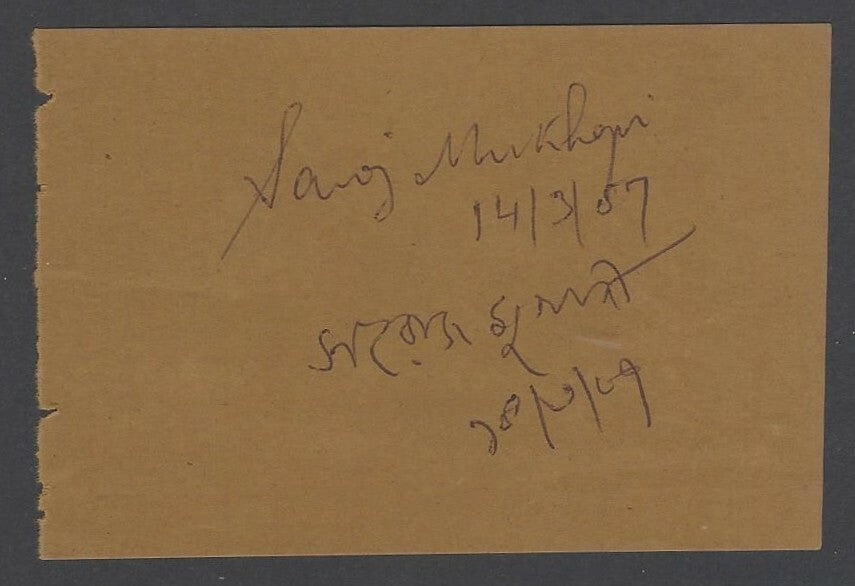 Saroj Mukherji
14/3/57
সরোজ মুখার্জী
১৪/৩/৫৭